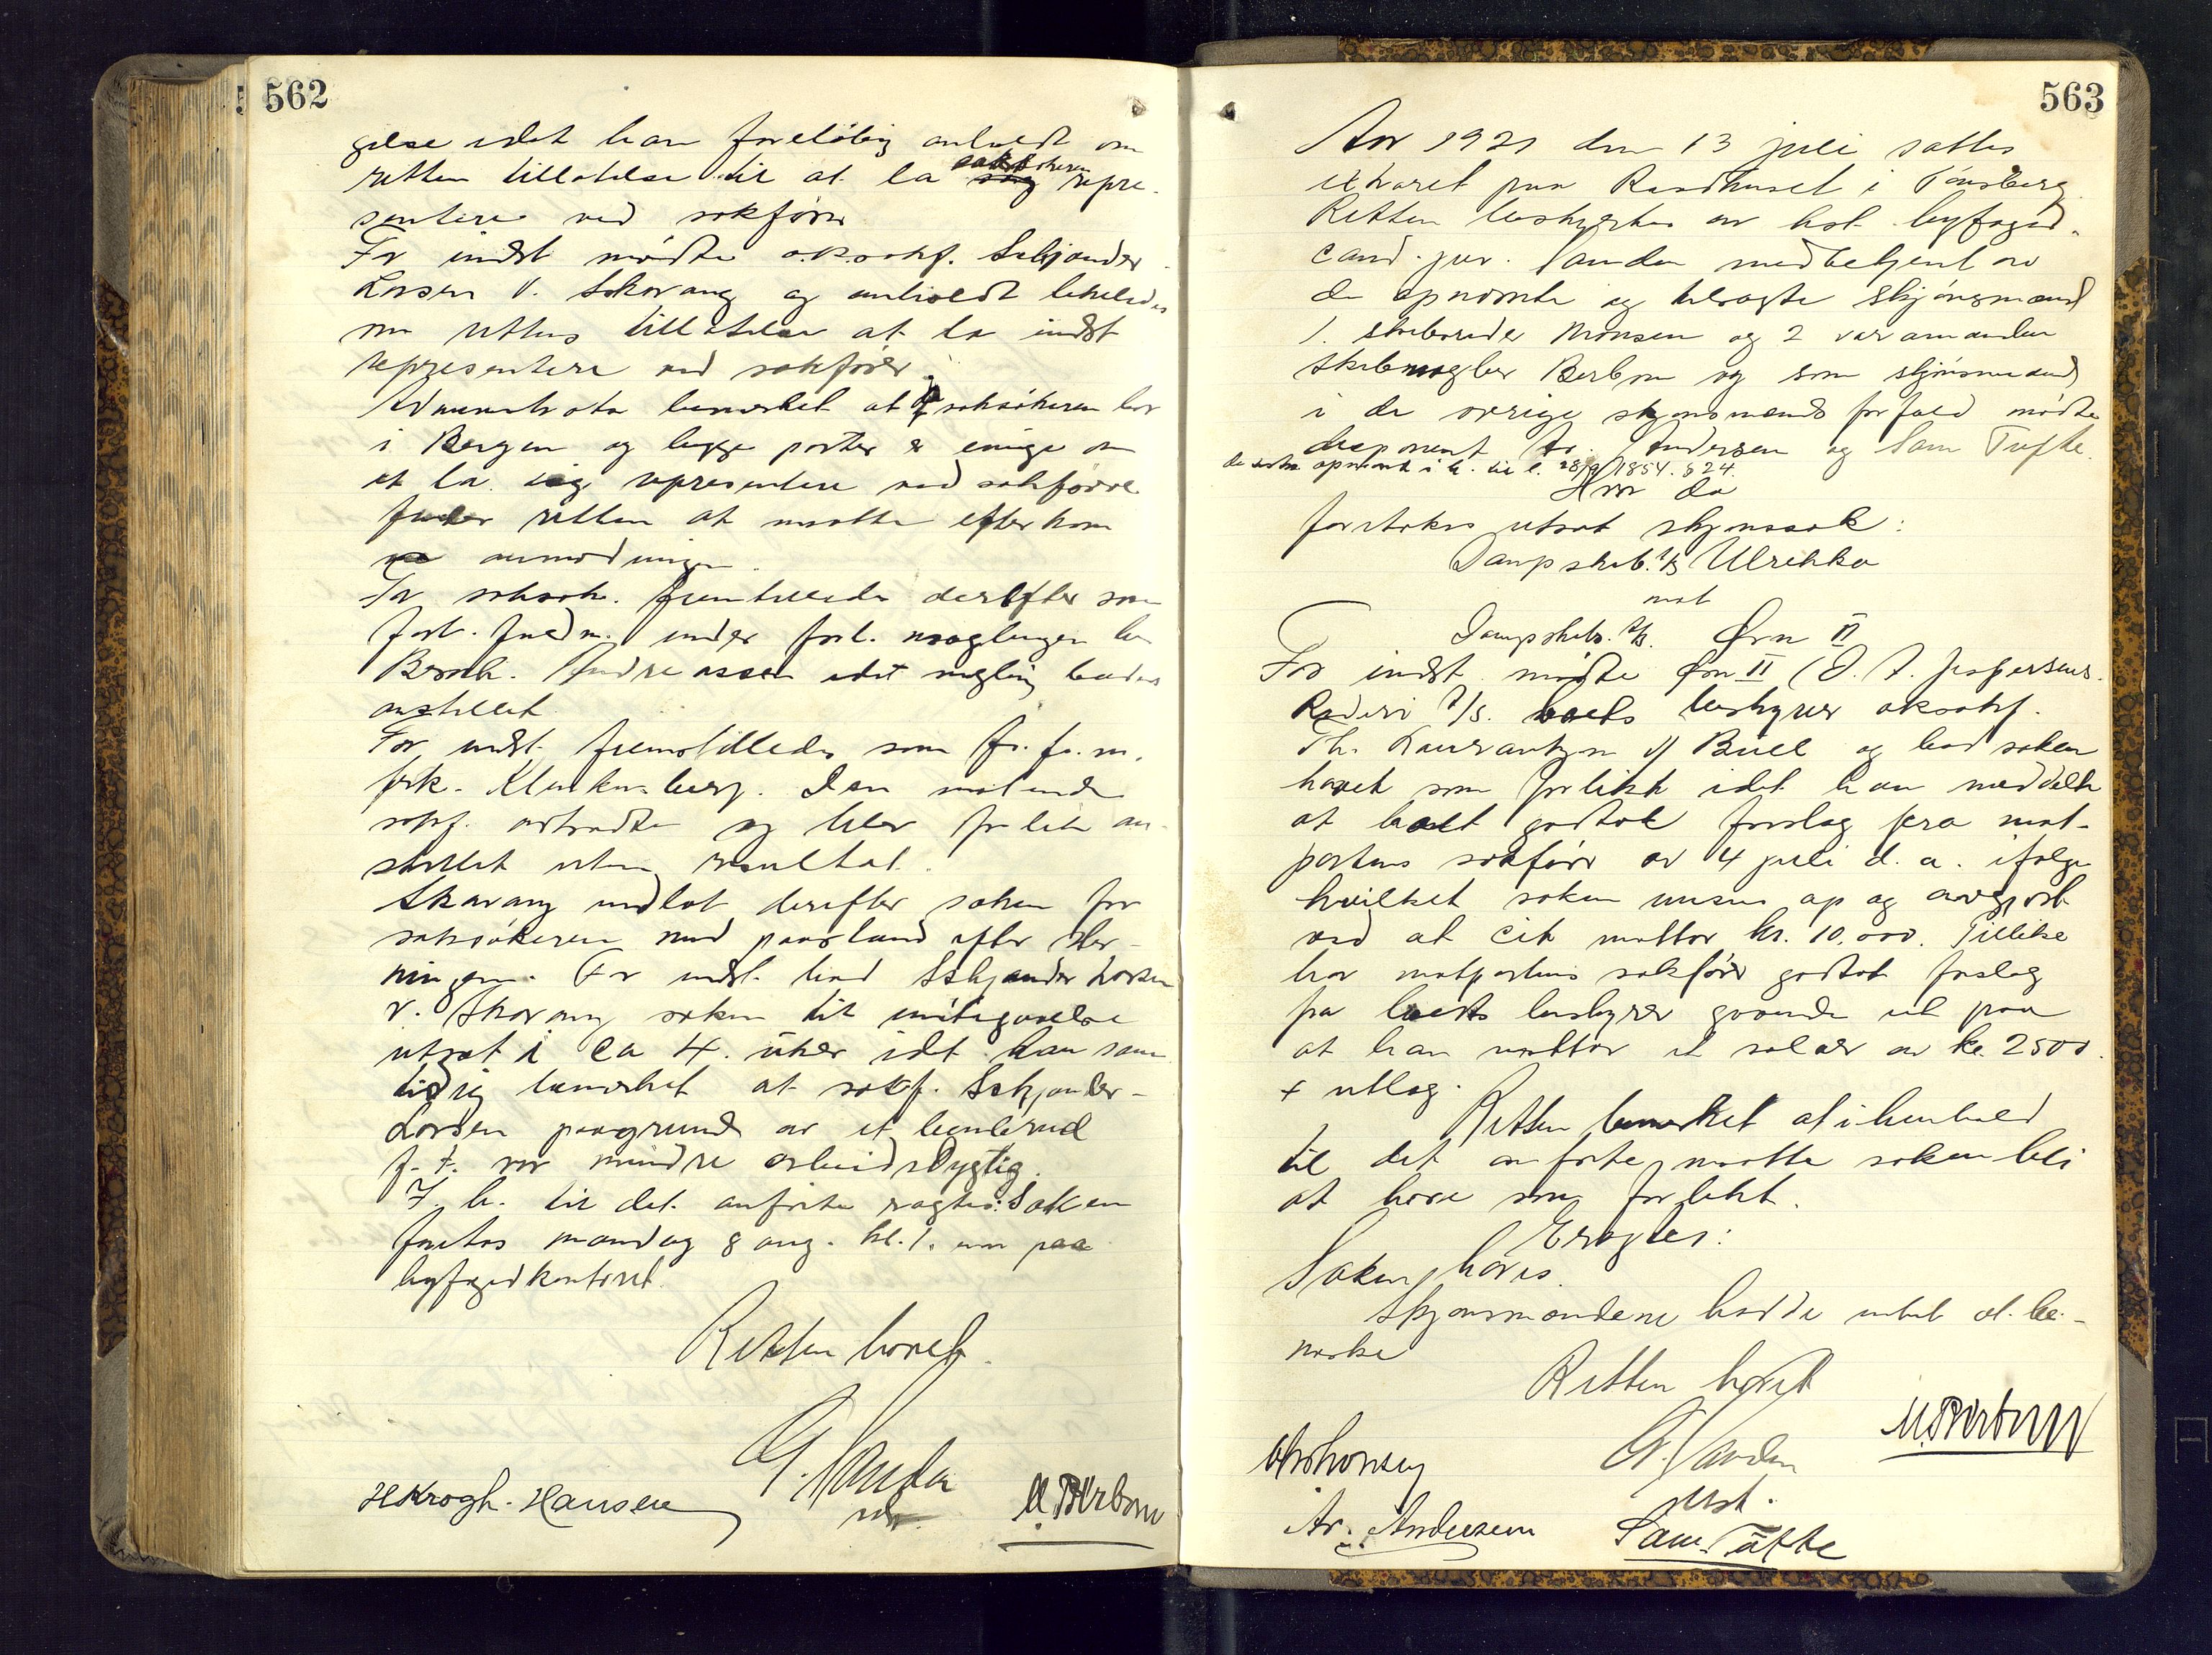 562
gelse idet han foreløbig anholdt om
rettens tillatelse til at la saksøkeren repre-
sentere ved sakfører
For indst mødte o.r.sakf. Schjander
Larsen v. Skavang og anholdt likeledes
om rettens tillatelse at la indst
representere ved sakfører.
Administrator bemerket at saksøkeren bor
i Bergen og begge parter er enige om
at la sig representere ved sakfører
finder retten at maatte efterkom
anmodningen.
For saksøk. fremstilledes derefter som
forl. fuldm. under forl. mæglingen
Bernh. Andreassen idet mægling blev
anstillet
For indst. fremstilledes som fr. fu. m.
frk. Klinkenberg. Den møtende
sakf. astraadte og blev forlik an-
stillet uten resultat.
Skavang indlot derefter saken for
saksøkeren med paastand efter stev-
ningen. For indst. bad Schjander Larsen
v. Skavang saken til imøtegaaelse
utsat i ca 4. uker idet han sam-
tidig bemerket at sakf. Schjander-
Larsen paagrund av et benbrud
f. t. var mindre arbeidsdygtig.
I. h. til det anførte vagtes: Saken
foretas mandag 8 aug. kl. 1. em paa
byfogedkontoret.
Retten hævet.
G. Sanden
HKrogh-Hansen
M. Berbom
563
Aar 1921 den 13 juli sattes
ekstraret paa Raadhuset i Tønsberg
Retten bestyrtes av kst. byfoged,
cand. jur. Sanden medbetjent av
de opnævnte og tilsagte skjønsmænd
1. skibsreder Monsen og 2 varamanden
skibsmægler Berbom og som skjønsmænd
i de øvrige skjønsmænds forfald mødte
disponent Ar. Andersen og Sam Tufte.
opnævnt i h. til l. 28/8 1854. § 24.
Hvor da
foretokes utsat skjønssak:
Dampskibs. A/S Ulrikka
mot
Dampskibs. A/S. Ørn II
For indst mødte Ørn II (O. A. Jespersens
Rederi A/S. boets bestyrer o.r.sakf.
Th. Laurantzon v/ Bull og bad saken
hævet som forlikt idet han meddelte
at boet godtok forslag fra mot-
partens sakfører av 4 juli d. a. ifølge
hvilket saken ansees op og avgjort
ved at cit mottar kr. 10.000. Tillike
har motpartens sakfører godtat forslag
fra boets bestyrer gaaende ut paa
at han mottar et salær av kr. 2500
+ utlæg.
Retten bemerket at i henhold
til det anførte maatte saken bli
at hæve som forlikt.
Eragtes:
Saken hæves.
Skjønsmændene hadde intet at be-
merke
Retten hævet
G. Sanden
kst.
M. Berbom
Ar. Andersen
Sam. Tufte